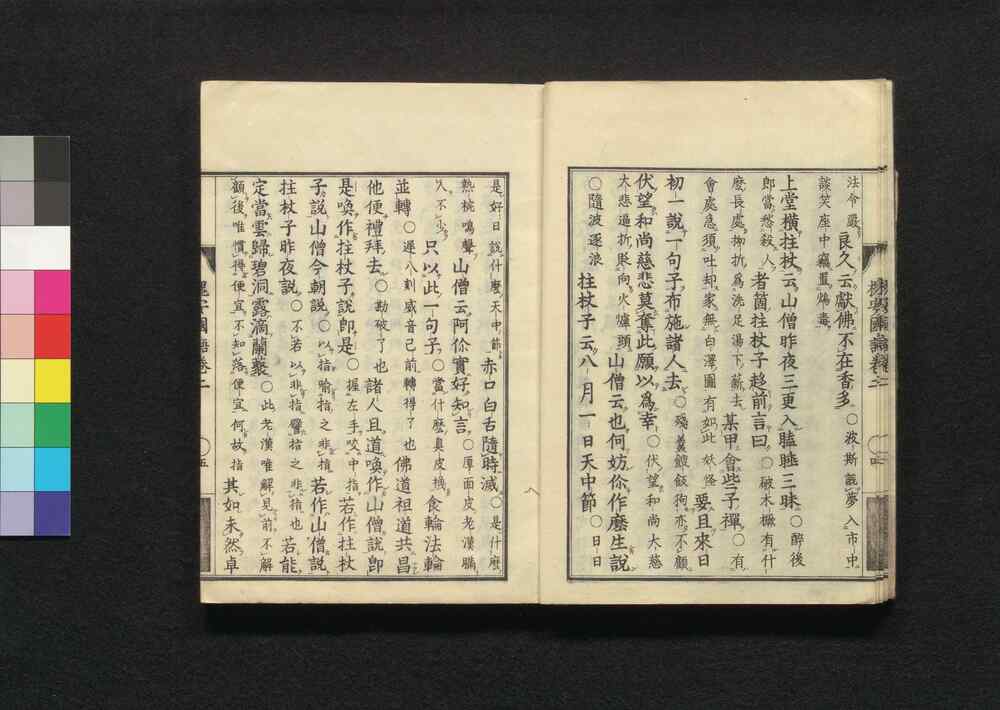 法令嚴良久云獻佛不在香多○波斯説夢入市中
談笑座中竊置鴆毒
上堂横拄杖云山僧昨夜三更入瞌睡三昧○醉後
郎當愁殺人者箇拄杖子趍前言曰○破木橛有什
麽長處拗折爲洗足湯下薪去某甲會些子禪○有
會處急須吐却家無白澤圖有如此妖怪要且來日
初一説一句子布施諸人去○殘羹餿飯狗亦不顧
伏望和尚慈悲莫奪此願以爲幸○伏望和尚大慈
大悲過折脚向火爐頭山僧云也何妨伱作麽生説
○隨波逐浪拄杖子云八月一日天中節○日日
是好日説什麽天中節赤口白舌隨時滅○是什麽
熱椀鳴聲山僧云阿伱實好知言○厚面皮老漢瞞
人不少只以此一句子○當什麽臭皮襪食輪法輪
並轉○遲八刻威音已前轉得了也佛道祖道共昌
他便禮拜去○勘破了也諸人且道喚作山僧説即
是喚作拄杖子説即是○握左手咬中指若作拄杖
子説山僧今朝説○以指喻指之非指若作山僧説
拄杖子昨夜説○不若以非指譬指之非指也若能
定當雲歸碧洞露滴蘭叢○此老漢唯解見前不解
顧後唯慣得便宜不知落便宜何故指其如未然卓
國語卷二
五
四